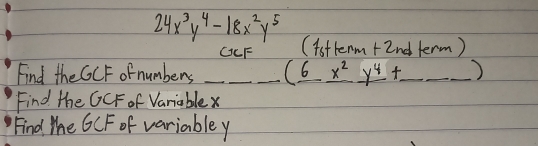 24x³y⁴ - 18x²y⁵
GCF (1st term + 2nd term)
• Find the GCF of numbers ___ ___ ___ (6 x² y⁴ + ___ ___)
• Find the GCF of Variable x
• Find the GCF of variable y